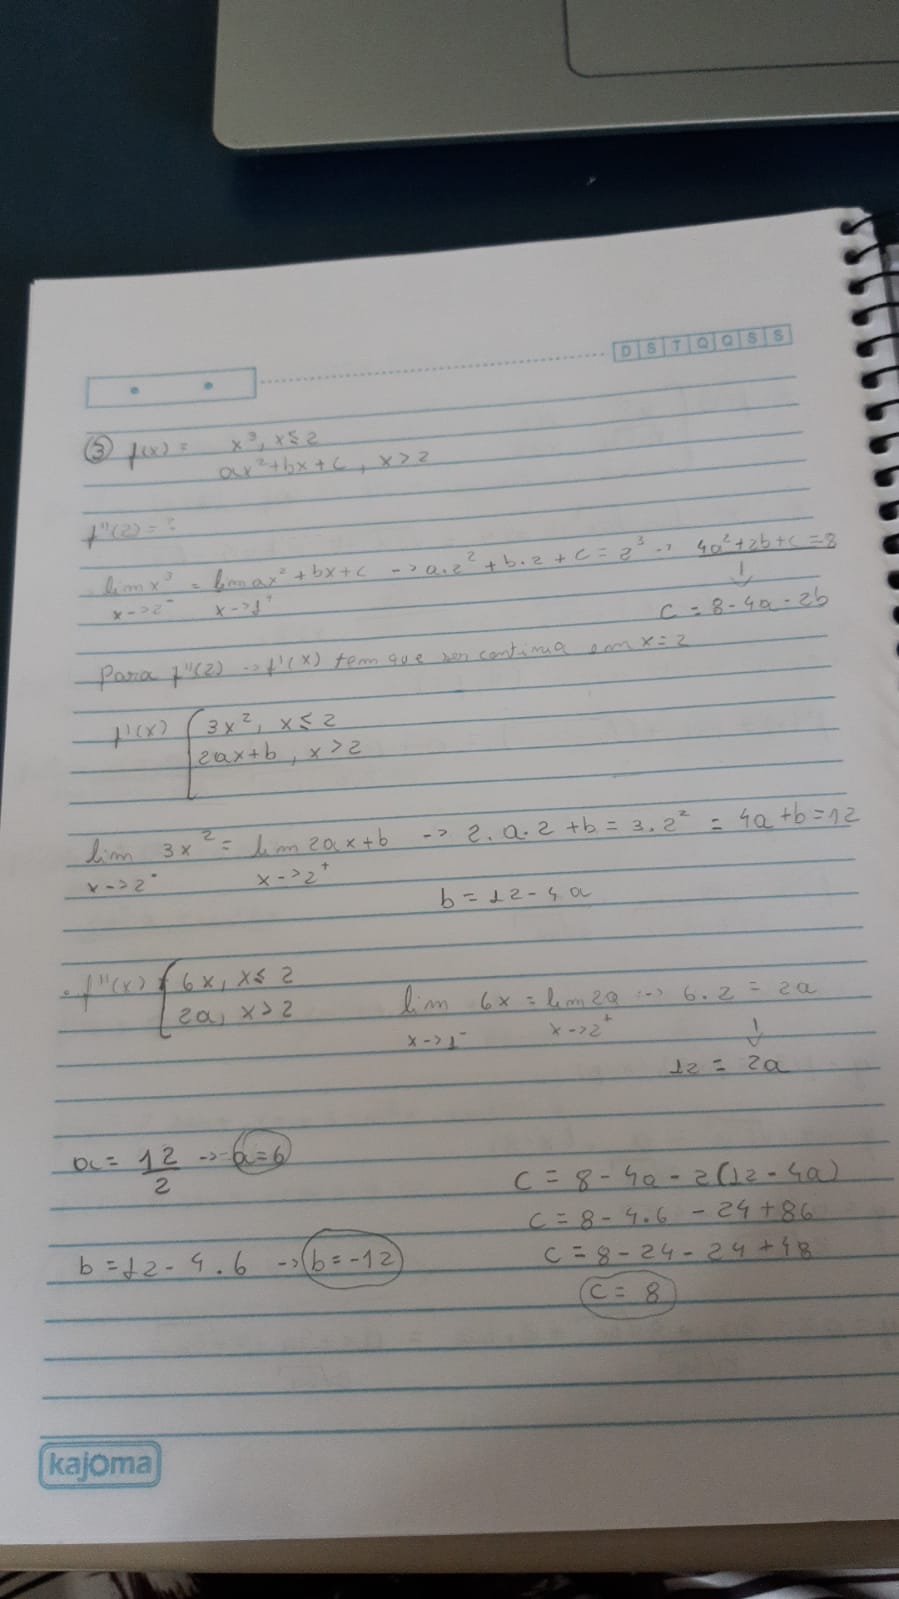 D S T Q Q S S
③ f(x) = x³, x ≤ 2
ax²+bx+c, x>2
f''(2) = ?
lim x³ = lim ax² + bx + c --> a.2² + b.2 + c = 2³ --> 4a²+2b+c=8
x->2⁻ x->1⁺
c = 8-4a-2b
Para f''(2) --> f'(x) tem que ser continua em x=2
f'(x) { 3x², x ≤ 2
2ax+b, x>2
lim 3x² = lim 2ax+b --> 2.a.2 + b = 3.2² = 4a+b=12
x->2⁻ x->2⁺
b = 12-4a
f''(x) { 6x, x≤2
2a, x>2
lim 6x = lim 2a --> 6.2 = 2a
x->1⁻ x->2⁺
12 = 2a
a = 12/2 --> a=6
b = 12 - 4.6 --> b=-12
c = 8 - 4a - 2(12-4a)
c = 8 - 4.6 - 24 + 86
c = 8 - 24 - 24 + 48
c = 8
kajoma